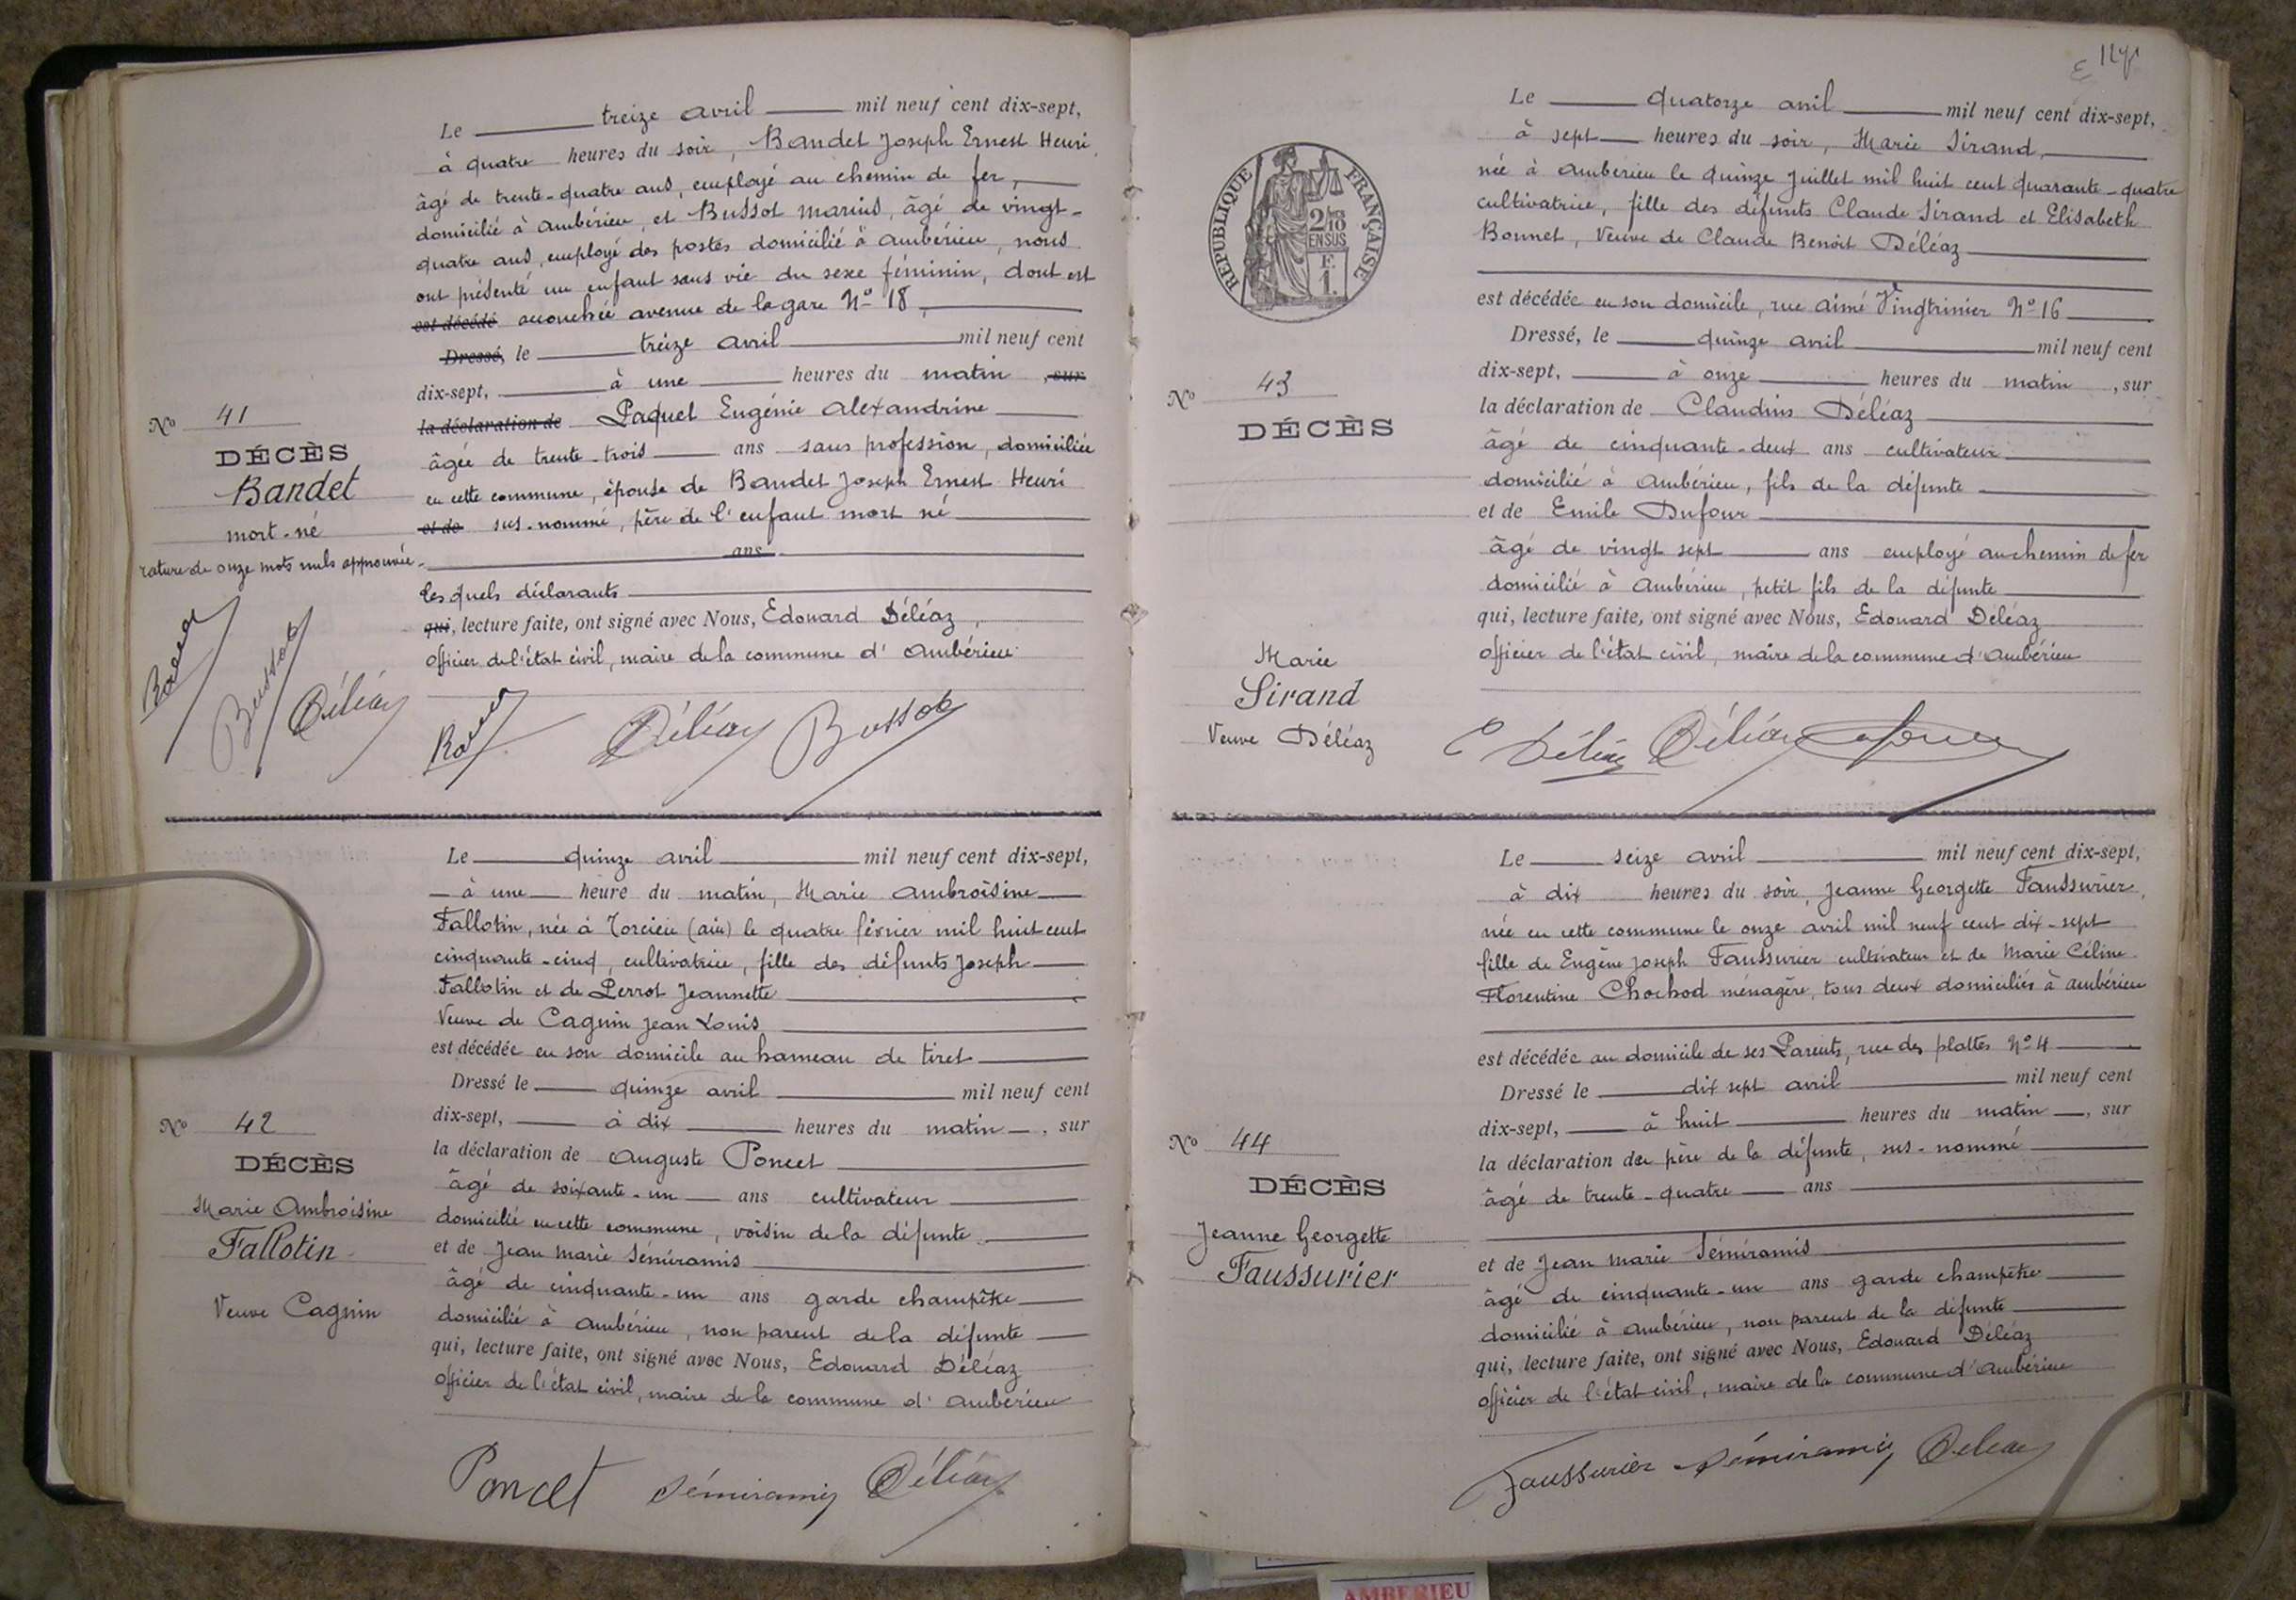 Le treize avril mil neuf cent dix-sept,
à quatre heures du soir, Bandet Joseph Ernest Henri,
âgé de trente-quatre ans, employé au chemin de fer,
domicilié à Ambérieu, et Bussot Marius, âgé de vingt-
quatre ans, employé des postes domicilié à Ambérieu, nous
ont présenté un enfant sans vie du sexe féminin, dont est
est décédé accouchée avenue de la gare N° 18,
Dressé, le treize avril mil neuf cent
dix-sept, à une heures du matin, sur
la déclaration de Paquet Eugénie Alexandrine
âgée de trente-trois ans sans profession, domiciliée
en cette commune, épouse de Bandet Joseph Ernest Henri
et de sus-nommé, père de l'enfant mort né
ans
les quels déclarants
qui, lecture faite, ont signé avec Nous, Edouard Déléaz,
officier de l'état civil, maire de la commune d'Ambérieu
N° 41
DÉCÈS
Bandet
mort-né
rature de onze mots nuls approuvée.
Bussot
Déléaz
Déléaz Bussot
Le quinze avril mil neuf cent dix-sept,
à une heure du matin, Marie Ambroisine
Fallotin, née à Torcieu (ain) le quatre février mil huit cent
cinquante-cinq, cultivatrice, fille des défunts Joseph
Fallotin et de Perrot Jeannette
Veuve de Cagnin Jean Louis
est décédée en son domicile au hameau de tiret
Dressé le quinze avril mil neuf cent
dix-sept, à dix heures du matin, sur
la déclaration de Auguste Poncet
âgé de soixante-un ans cultivateur
domicilié en cette commune, voisin de la défunte
et de Jean Marie Sémiramis
âgé de cinquante-un ans garde champêtre
domicilié à Ambérieu, non parent de la défunte
qui, lecture faite, ont signé avec Nous, Edouard Déléaz
officier de l'état civil, maire de la commune d'Ambérieu
N° 42
DÉCÈS
Marie Ambroisine
Fallotin
Veuve Cagnin
Poncet Sémiramis Déléaz
RÉPUBLIQUE FRANÇAISE
2/10
EN SUS
F.
1.
Le quatorze avril mil neuf cent dix-sept,
à sept heures du soir, Marie Sirand,
née à Ambérieu le quinze Juillet mil huit cent quarante-quatre
cultivatrice, fille des défunts Claude Sirand et Elisabeth
Bonnet, Veuve de Claude Benoit Déléaz
est décédée en son domicile, rue Aimé Vingtrinier N° 16
Dressé, le quinze avril mil neuf cent
dix-sept, à onze heures du matin, sur
la déclaration de Claudius Déléaz
âgé de cinquante-deux ans cultivateur
domicilié à Ambérieu, fils de la défunte
et de Emile Dufour
âgé de vingt sept ans employé au chemin de fer
domicilié à Ambérieu, petit fils de la défunte
qui, lecture faite, ont signé avec Nous, Edouard Déléaz
officier de l'état civil, maire de la commune d'Ambérieu
N° 43
DÉCÈS
Marie
Sirand
Veuve Déléaz
C Déléaz Déléaz
Le seize avril mil neuf cent dix-sept,
à dix heures du soir, Jeanne Georgette Faussurier,
née en cette commune le onze avril mil neuf cent dix-sept
fille de Eugène Joseph Faussurier cultivateur et de Marie Céline
Florentine Chochod ménagère, tous deux domiciliés à Ambérieu
est décédée au domicile de ses Parents, rue des plattes N° 4
Dressé le dix sept avril mil neuf cent
dix-sept, à huit heures du matin, sur
la déclaration du père de la défunte, sus-nommé
âgé de trente-quatre ans
et de Jean Marie Sémiramis
âgé de cinquante-un ans garde champêtre
domicilié à Ambérieu, non parent de la défunte
qui, lecture faite, ont signé avec Nous, Edouard Déléaz
officier de l'état civil, maire de la commune d'Ambérieu
N° 44
DÉCÈS
Jeanne Georgette
Faussurier
Faussurier Sémiramis Déléaz
AMBERIEU